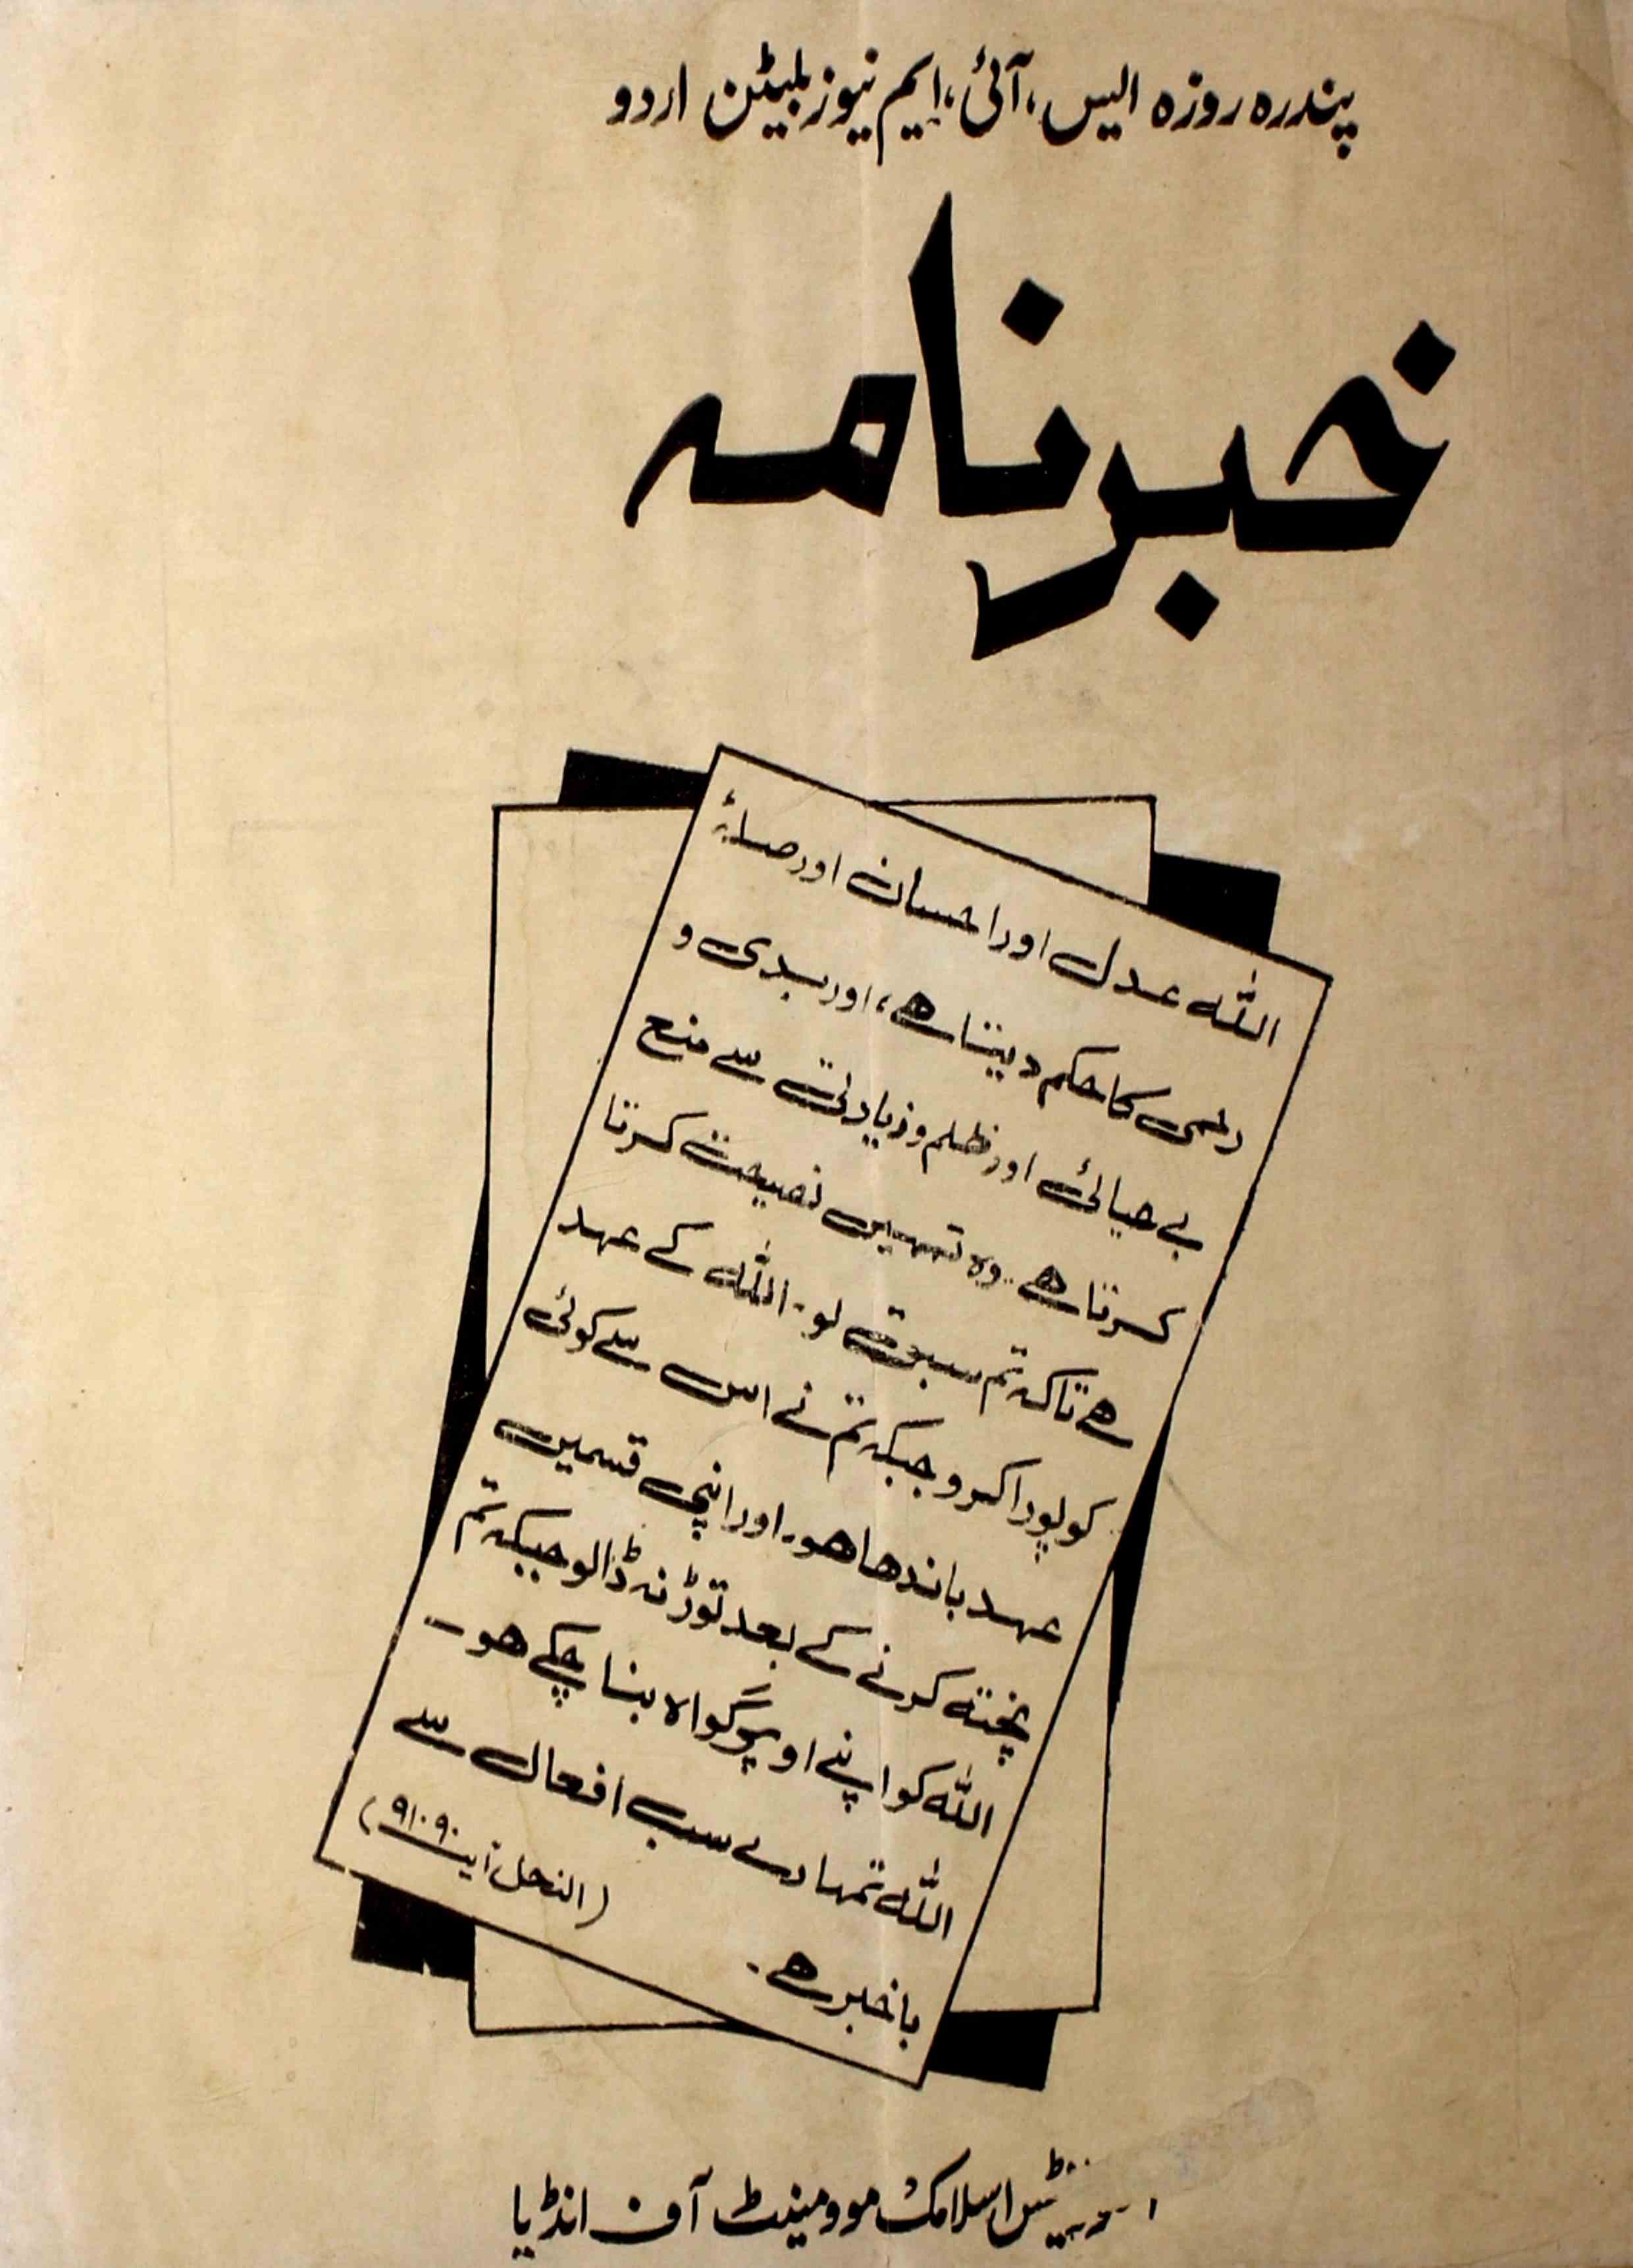 پندرہ روزہ ایس، آئی، ایم نیوز بلیٹن اردو
خبرنامہ
اللہ عدل اور احسان اور صلۂ
رحمی کا حکم دیتا ہے، اور بدی و
بے حیائی اور ظلم و زیادتی سے منع
کرتا ہے۔ وہ تمہیں نصیحت کرتا
ہے تاکہ تم سبق لو۔ اللہ کے عہد
کو پورا کرو جبکہ تم نے اس سے کوئی
عہد باندھا ہو۔ اور اپنی قسمیں
پختہ کرنے کے بعد توڑ نہ ڈالو جبکہ تم
اللہ کو اپنے اوپر گواہ بنا چکے ہو۔
اللہ تمہارے سب افعال سے
باخبر ہے۔
(النحل آیت ۹۰۔۹۱)
اسلامک موومینٹ آف انڈیا